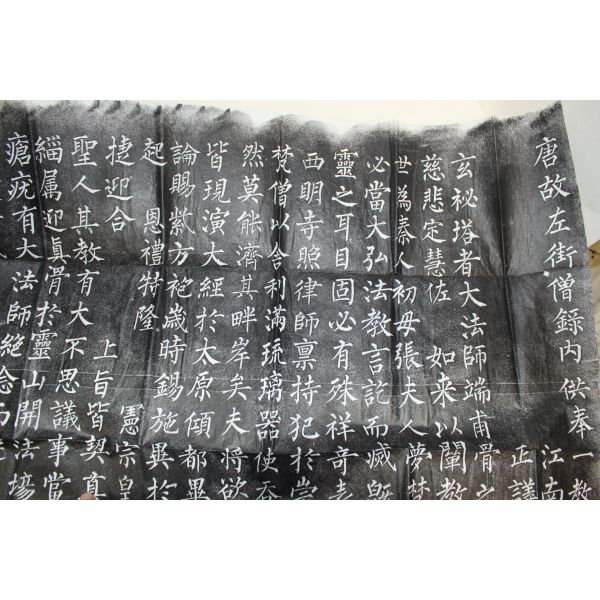 唐故左街僧錄内供奉三教
江南
正議
玄秘塔者大法師端甫骨之
慈悲定慧佐 如来以闡教
世為秦人初母張夫人夢梵
必當大弘法教言訖而滅既
靈之耳目固必有殊祥奇表
西明寺照律師禀持犯於崇
梵僧以舍利滿琉璃器使吞
然莫能濟其畔岸矣夫將欲
皆現演大經於太原傾都畢
論賜紫方袍歲時錫施異於
起 恩禮特隆 憲宗皇
捷迎合 上旨皆契真
聖人其教有大不思議事當
緇属迎眞骨於靈山開法場
瘡疣有大法師絶念而